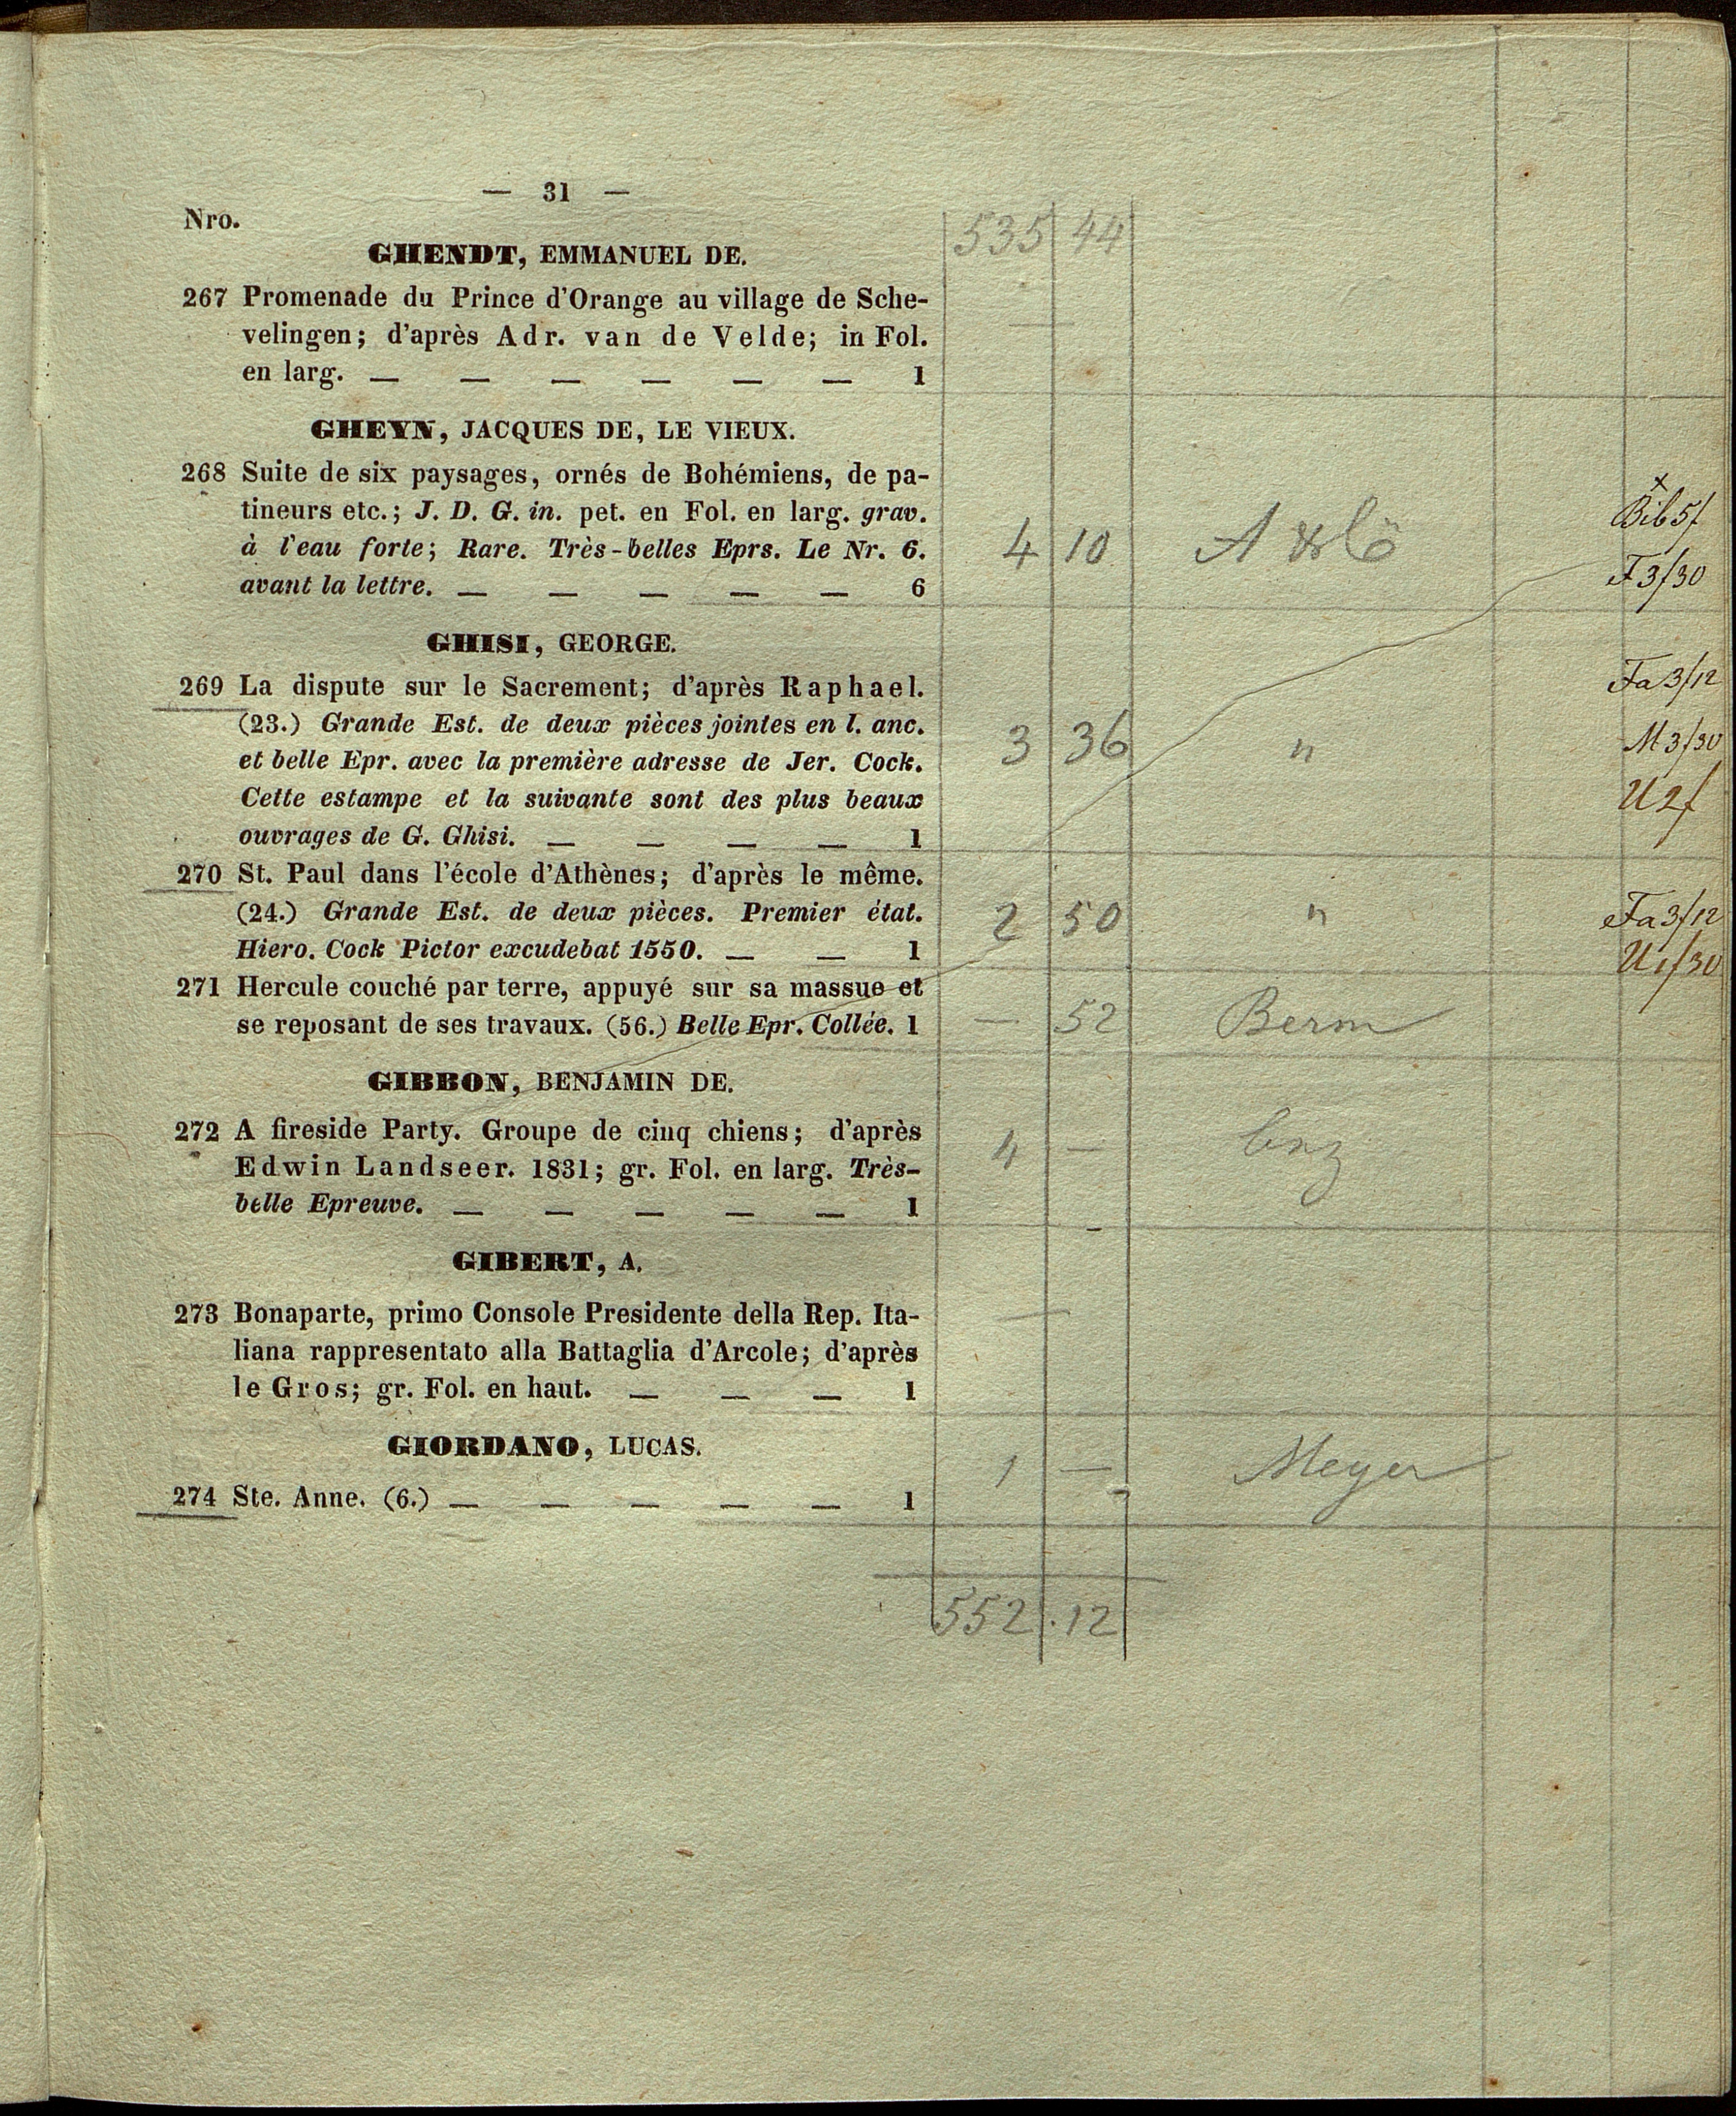 — 31 —
Nro.
535 44
GHENDT, EMMANUEL DE.
267 Promenade du Prince d'Orange au village de Sche-
velingen; d'après Adr. van de Velde; in Fol.
en larg. — — — — — — 1
—
GHEYN, JACQUES DE, LE VIEUX.
268 Suite de six paysages, ornés de Bohémiens, de pa-
tineurs etc.; J. D. G. in. pet. en Fol. en larg. grav.
à l'eau forte; Rare. Très-belles Eprs. Le Nr. 6.
avant la lettre. — — — — — 6
4 10
Bib 5f
F 3/30
GHISI, GEORGE.
269 La dispute sur le Sacrement; d'après Raphael.
(23.) Grande Est. de deux pièces jointes en l. anc.
et belle Epr. avec la première adresse de Jer. Cock.
Cette estampe et la suivante sont des plus beaux
ouvrages de G. Ghisi. — — — — 1
3 36 "
Fa 3/12
M 3/30
U 2f
270 St. Paul dans l'école d'Athènes; d'après le même.
(24.) Grande Est. de deux pièces. Premier état.
Hiero. Cock Pictor excudebat 1550. — — 1
2 50 "
Fa 3/12
U 1/30
271 Hercule couché par terre, appuyé sur sa massue et
se reposant de ses travaux. (56.) Belle Epr. Collée. 1
— 52 Berm
GIBBON, BENJAMIN DE.
272 A fireside Party. Groupe de cinq chiens; d'après
Edwin Landseer. 1831; gr. Fol. en larg. Très-
belle Epreuve. — — — — — 1
4 —
GIBERT, A.
273 Bonaparte, primo Console Presidente della Rep. Ita-
liana rappresentato alla Battaglia d'Arcole; d'après
le Gros; gr. Fol. en haut. — — — 1
—
GIORDANO, LUCAS.
274 Ste. Anne. (6.) — — — — — 1
1 — Meyer
552 . 12